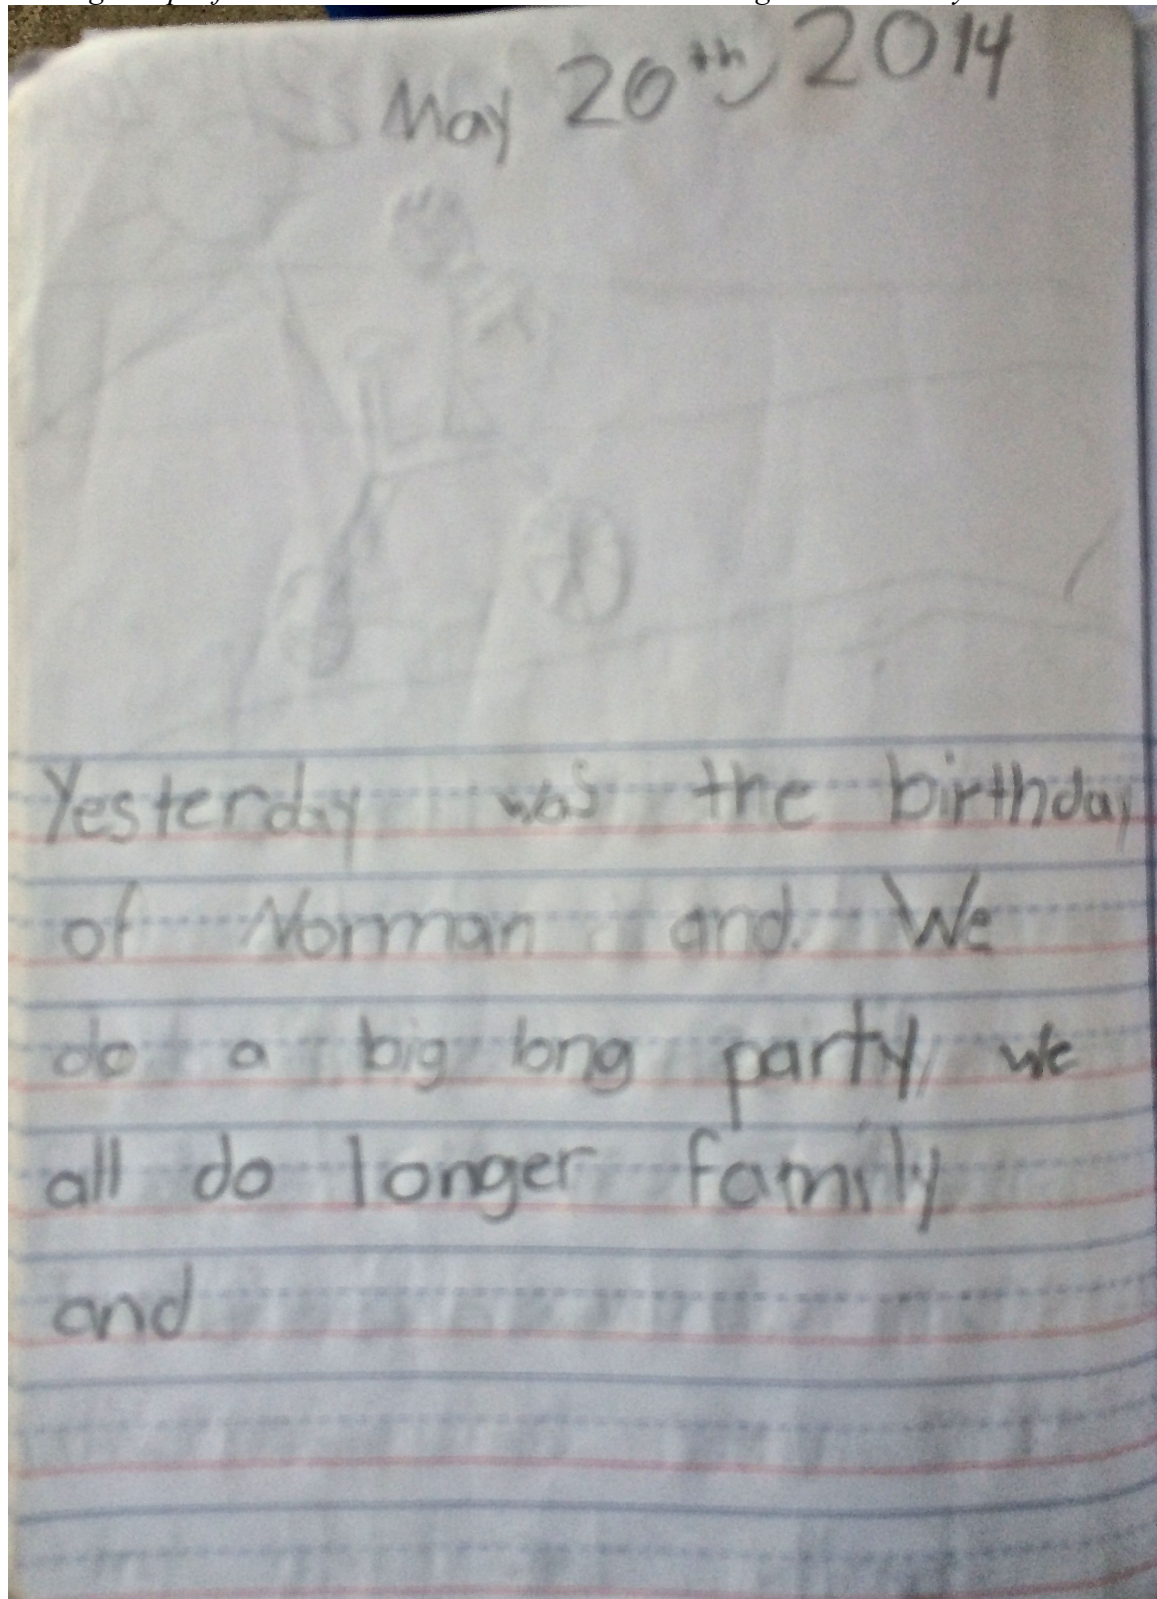 May 20th, 2014
Yesterday was the birthday
of Norman and. We
do a big long party, we
all do longer family
and